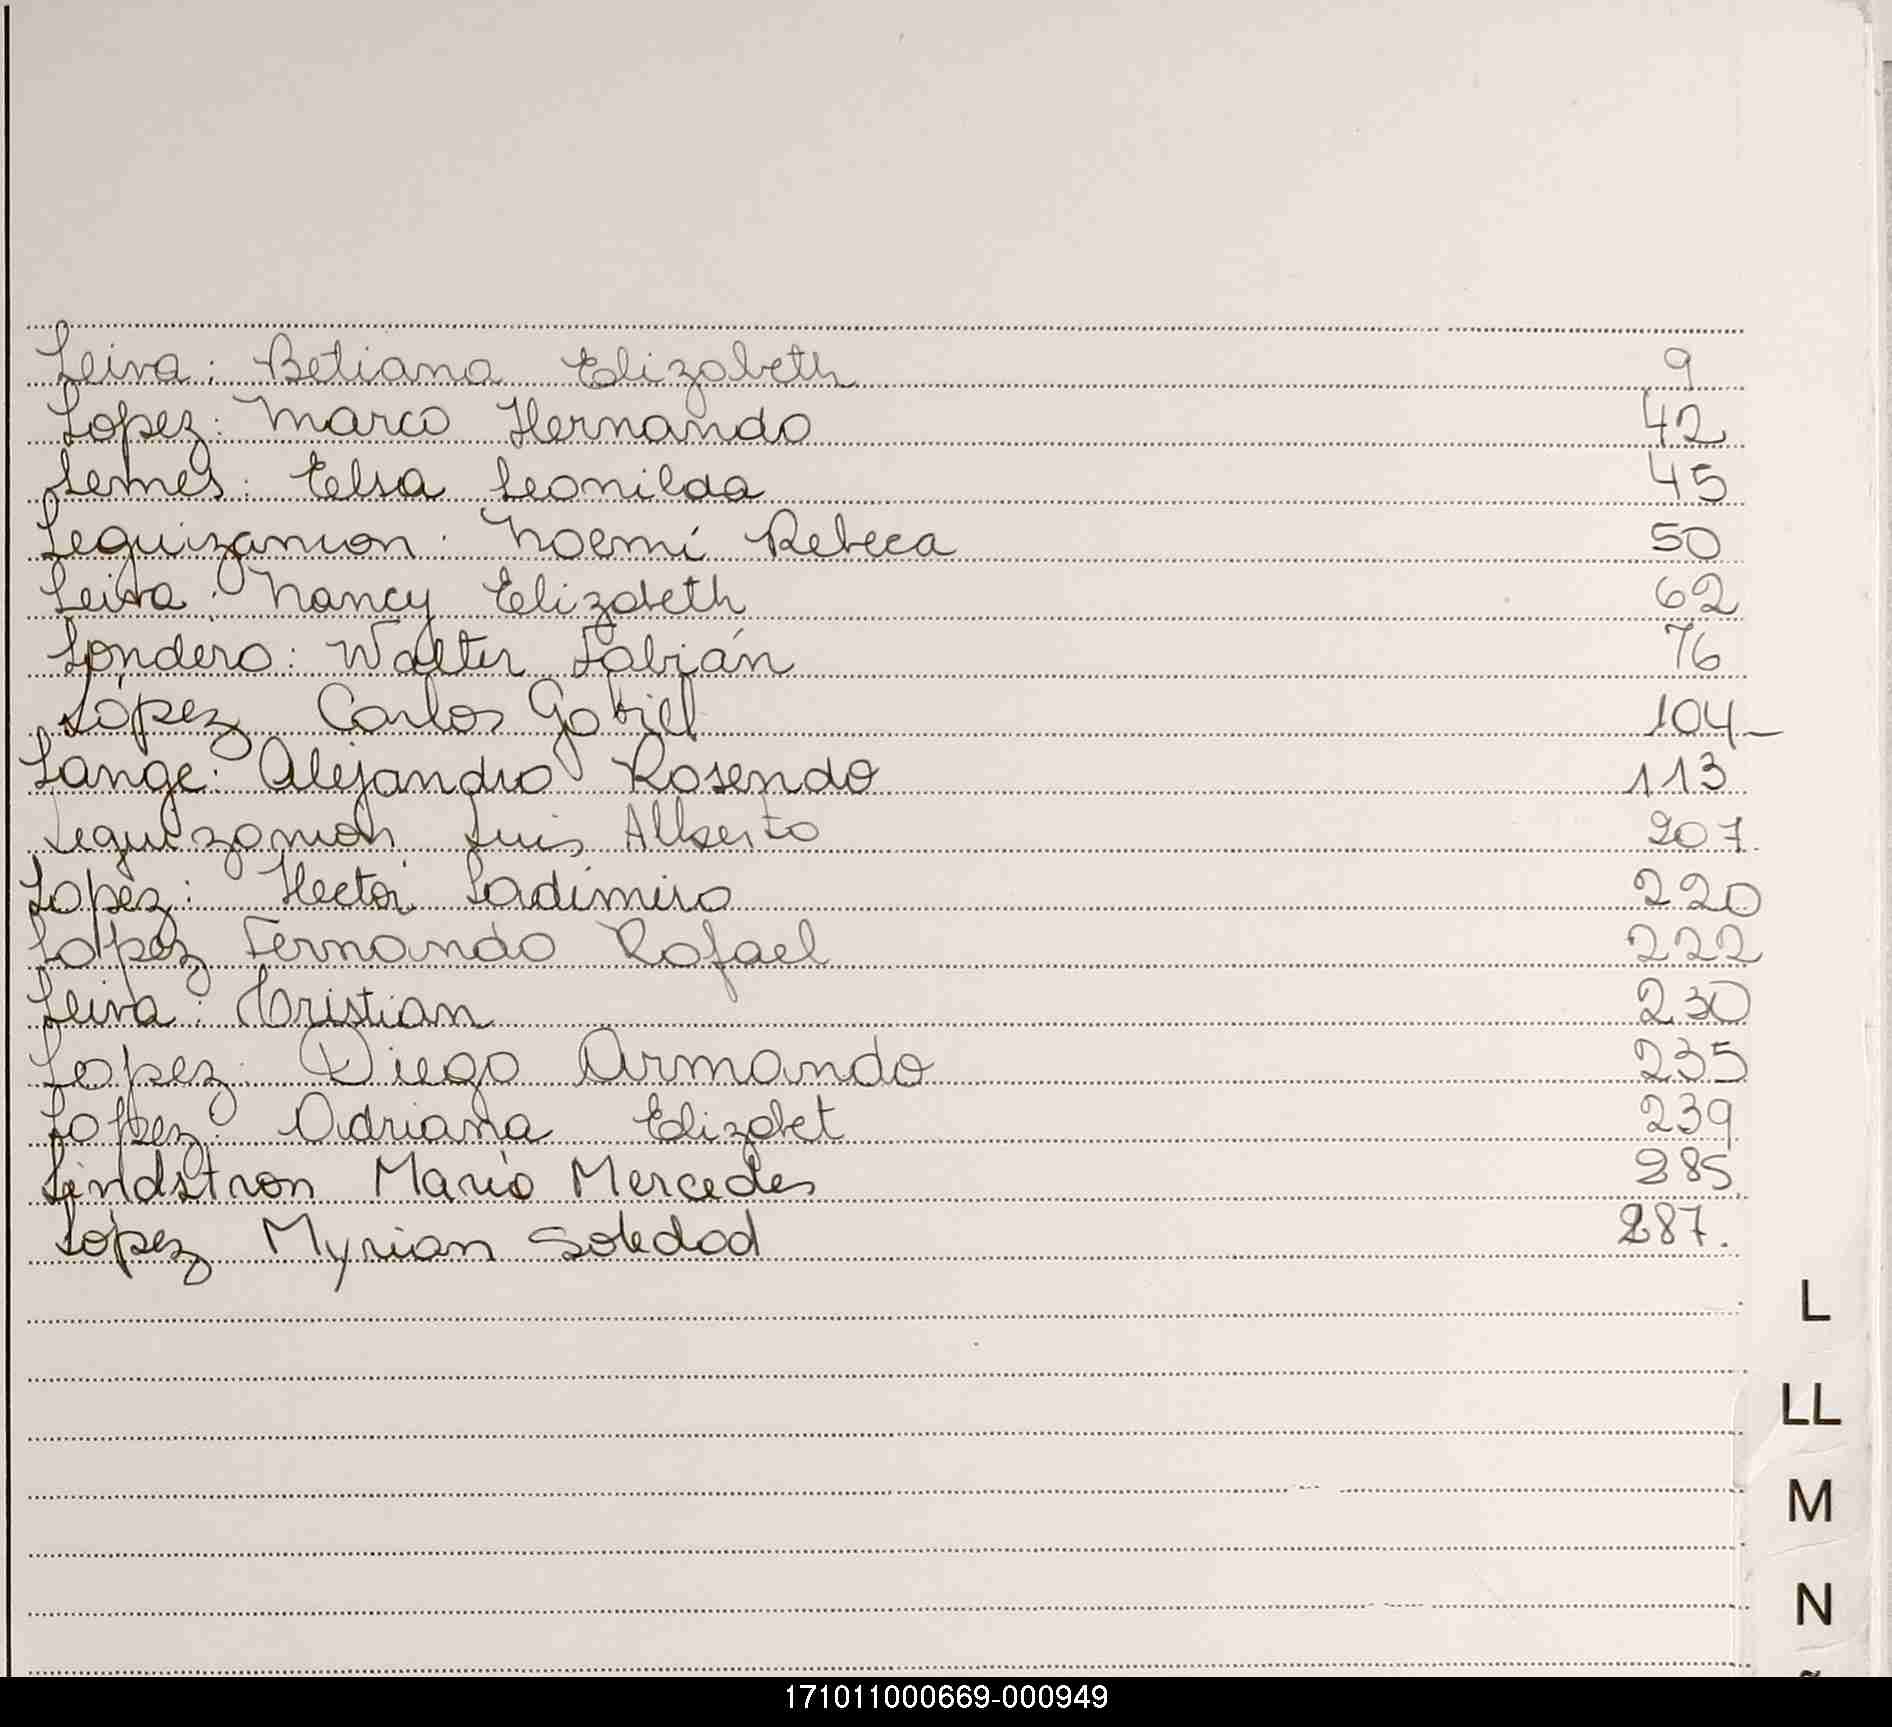 Leiva: Betiana Elizabeth 9
Lopez: Marco Hernando 42
Lemes: Elsa Leonilda 45
Leguizamon: Noemí Rebeca 50
Leiva: Nancy Elizabeth 62
Londero: Walter Fabián 76
López Carlos Gabriel 104-
Lange: Alejandro Rosendo 113
Leguizamon Luis Alberto 207.
Lopez: Hector Ladimiro 220
Lopez Fernando Rafael 222
Leiva: Cristian 230
Lopez: Diego Armando 235
Lopez: Adriana Elizabet 239
Lindstron María Mercedes 285
López Myrian Soledad 287.
L
LL
M
N
171011000669-000949